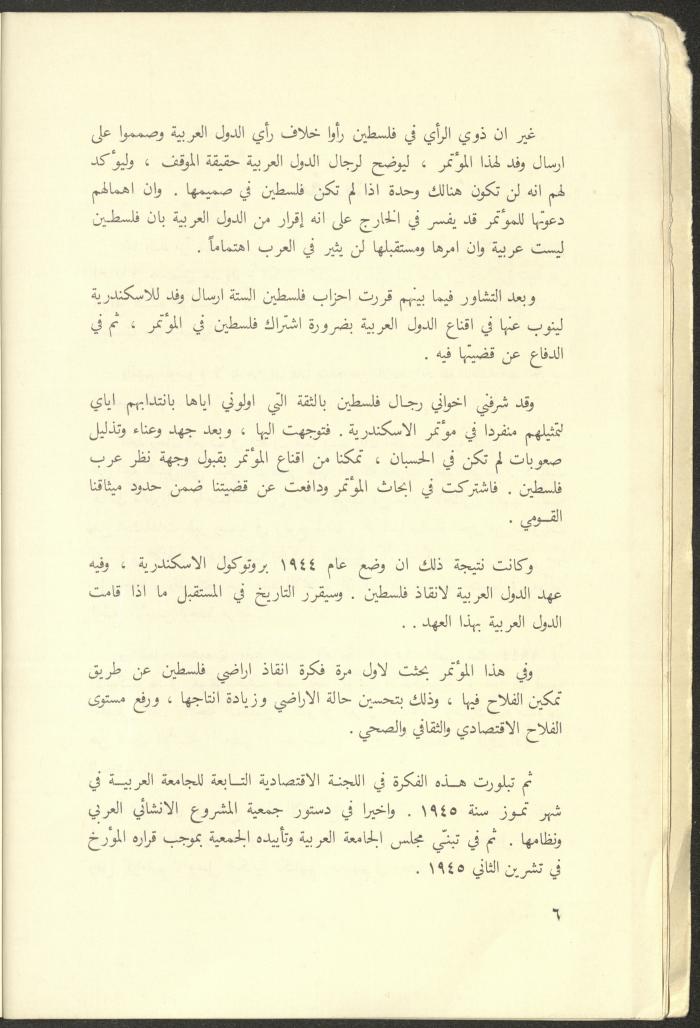 غير ان ذوي الرأي في فلسطين رأوا خلاف رأي الدول العربية وصمموا على
ارسال وفد لهذا المؤتمر ، ليوضح لرجال الدول العربية حقيقة الموقف ، وليؤكد
لهم انه لن تكون هنالك وحدة اذا لم تكن فلسطين في صميمها . وان اهمالهم
دعوتها للمؤتمر قد يفسر في الخارج على انه إقرار من الدول العربية بان فلسطين
ليست عربية وان امرها ومستقبلها لن يثير في العرب اهتماماً .
وبعد التشاور فيما بينهم قررت احزاب فلسطين الستة ارسال وفد للاسكندرية
لينوب عنها في اقناع الدول العربية بضرورة اشتراك فلسطين في المؤتمر ، ثم في
الدفاع عن قضيتها فيه .
وقد شرفني اخواني رجال فلسطين بالثقة التي اولوني اياها بانتدابهم اياي
لتمثيلهم منفردا في مؤتمر الاسكندرية . فتوجهت اليها ، وبعد جهد وعناء وتذليل
صعوبات لم تكن في الحسبان ، تمكنا من اقناع المؤتمر بقبول وجهة نظر عرب
فلسطين . فاشتركت في ابحاث المؤتمر ودافعت عن قضيتنا ضمن حدود ميثاقنا
القومي .
وكانت نتيجة ذلك ان وضع عام ١٩٤٤ بروتوكول الاسكندرية ، وفيه
عهد الدول العربية لانقاذ فلسطين . وسيقرر التاريخ في المستقبل ما اذا قامت
الدول العربية بهذا العهد . .
وفي هذا المؤتمر بحثت لاول مرة فكرة انقاذ اراضي فلسطين عن طريق
تمكين الفلاح فيها ، وذلك بتحسين حالة الاراضي وزيادة انتاجها ، ورفع مستوى
الفلاح الاقتصادي والثقافي والصحي .
ثم تبلورت هذه الفكرة في اللجنة الاقتصادية التابعة للجامعة العربية في
شهر تموز سنة ١٩٤٥ . واخيرا في دستور جمعية المشروع الانشائي العربي
ونظامها . ثم في تبنّي مجلس الجامعة العربية وتأييده الجمعية بموجب قراره المؤرخ
في تشرين الثاني ١٩٤٥ .
٦